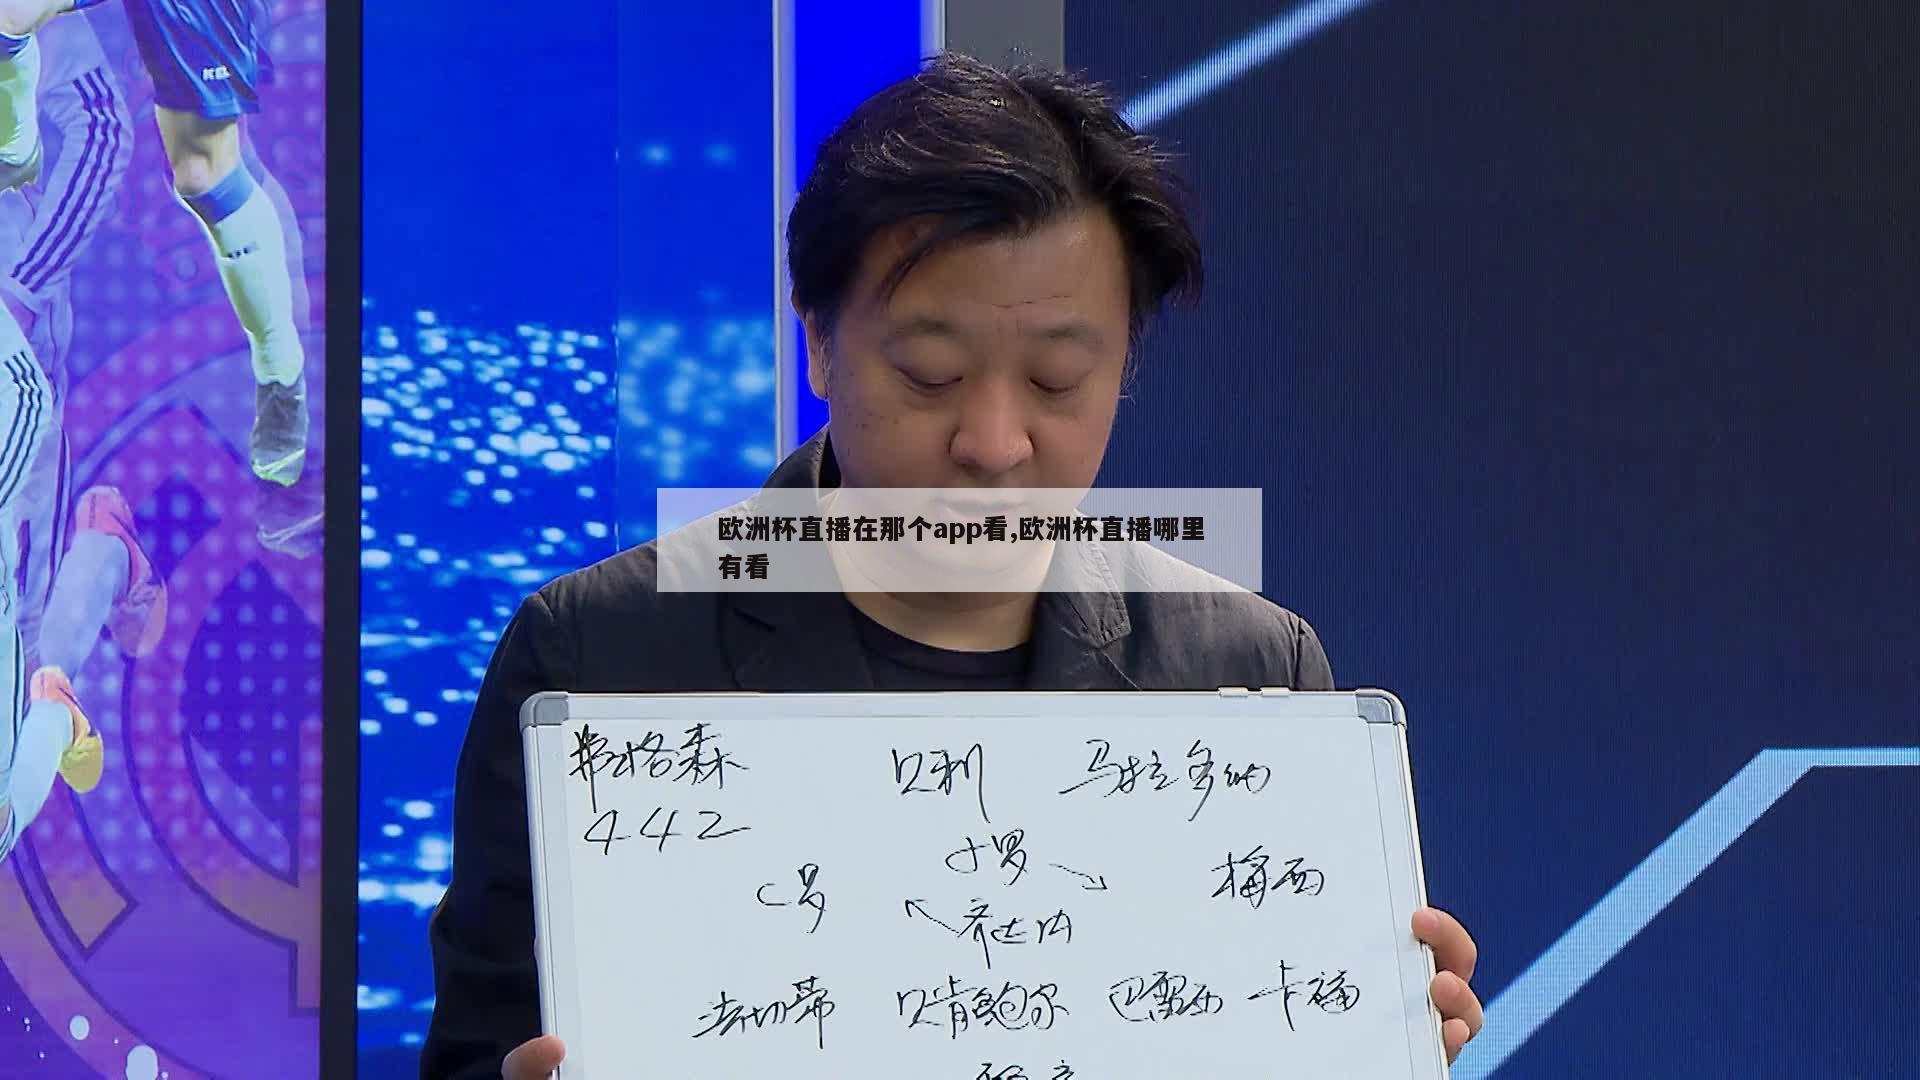 欧洲杯直播在那个app看,欧洲杯直播哪里
有看
弗格森 贝利 马拉多纳
442
小罗
C罗 梅西
齐达内
法切蒂 贝肯鲍尔 巴雷西 卡福